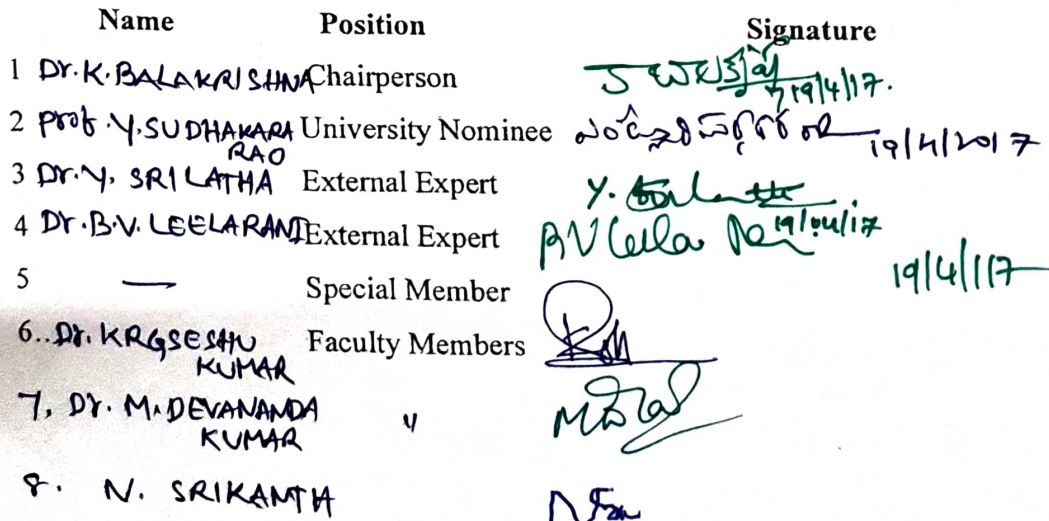 Name Position Signature
1 Dr. K. BALAKRISHNA Chairperson 19/4/17.
2 Prof. Y. SUDHAKARA RAO University Nominee 19/4/2017
3 Dr. Y. SRILATHA External Expert Y. 19/04/17
4 Dr. B.V. LEELARANI External Expert BV Leela Rani
19/4/17
5 — Special Member
6.. Dr. KRGSESHU KUMAR Faculty Members
7, Dr. M. DEVANANDA KUMAR "
8. N. SRIKANTH